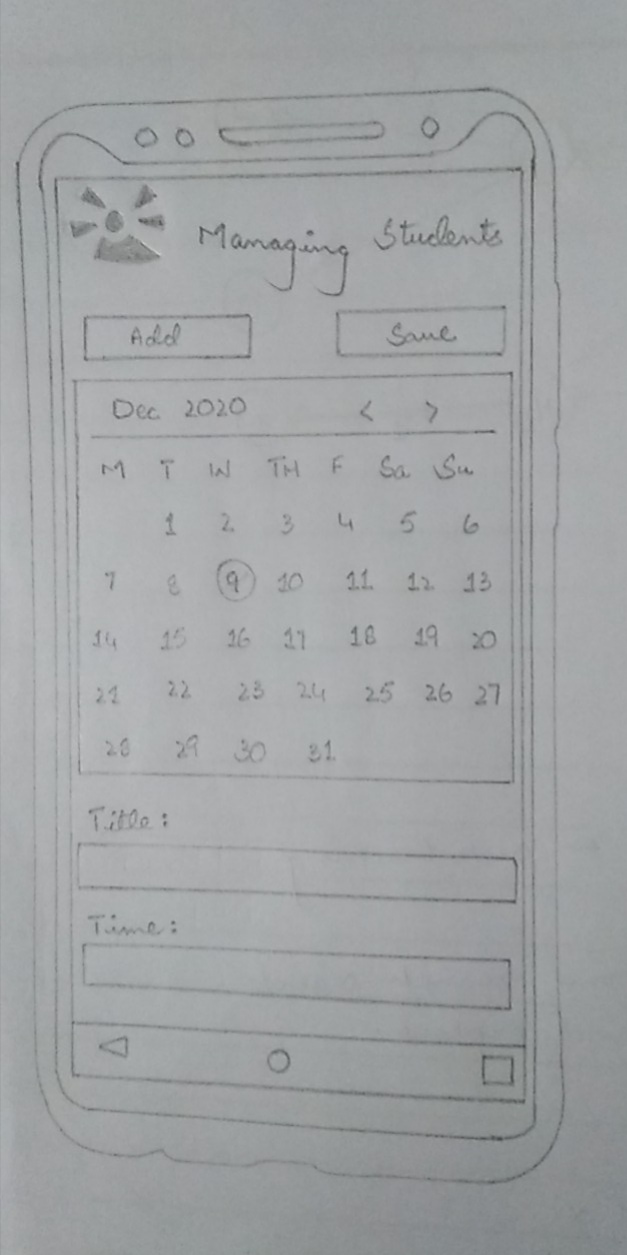 Managing Students
Add Save
Dec 2020 < >
M T W TH F Sa Su
1 2 3 4 5 6
7 8 9 10 11 12 13
14 15 16 17 18 19 20
21 22 23 24 25 26 27
28 29 30 31
Title:
Time: